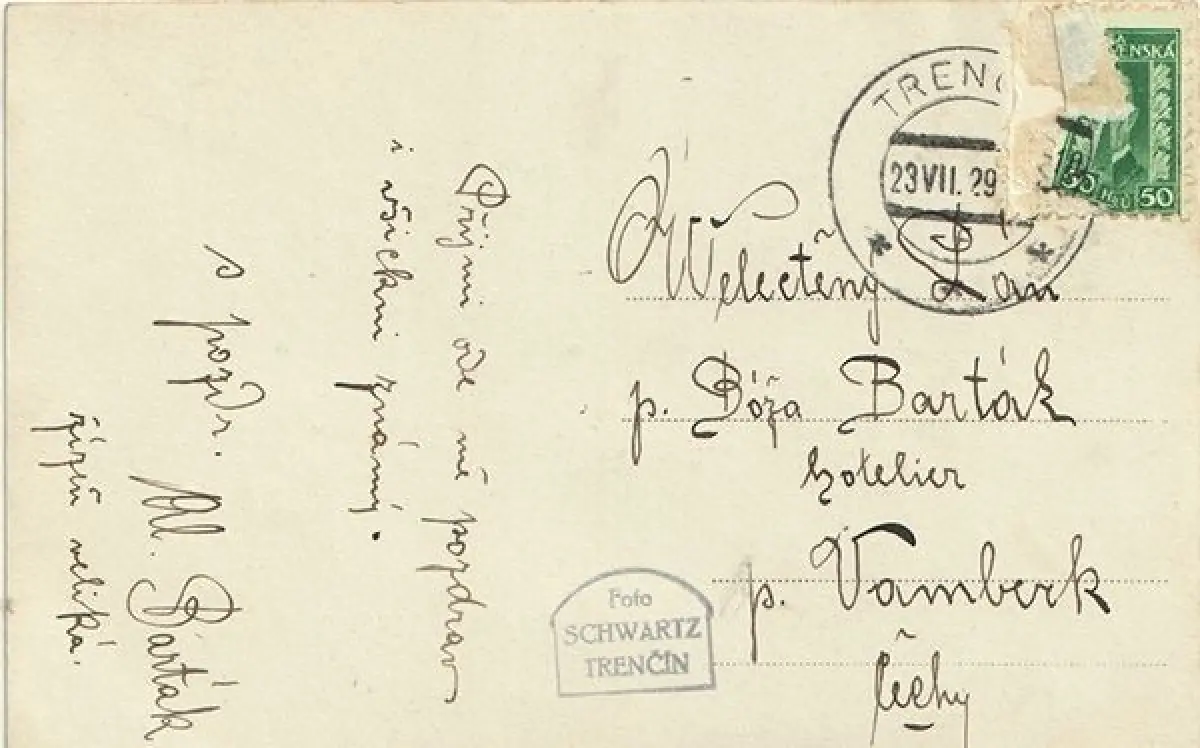 Přijmi ode mě pozdrav
i všickni známý.
s pozdr. Al. Barták
žízeň veliká.
TRENČ
23 VII. 29
ENSKÁ
50 HAL 50
Velectěný Pan
p. Bóža Barták
hotelier
p. Vamberk
Čechy
Foto
SCHWARTZ
TRENČÍN